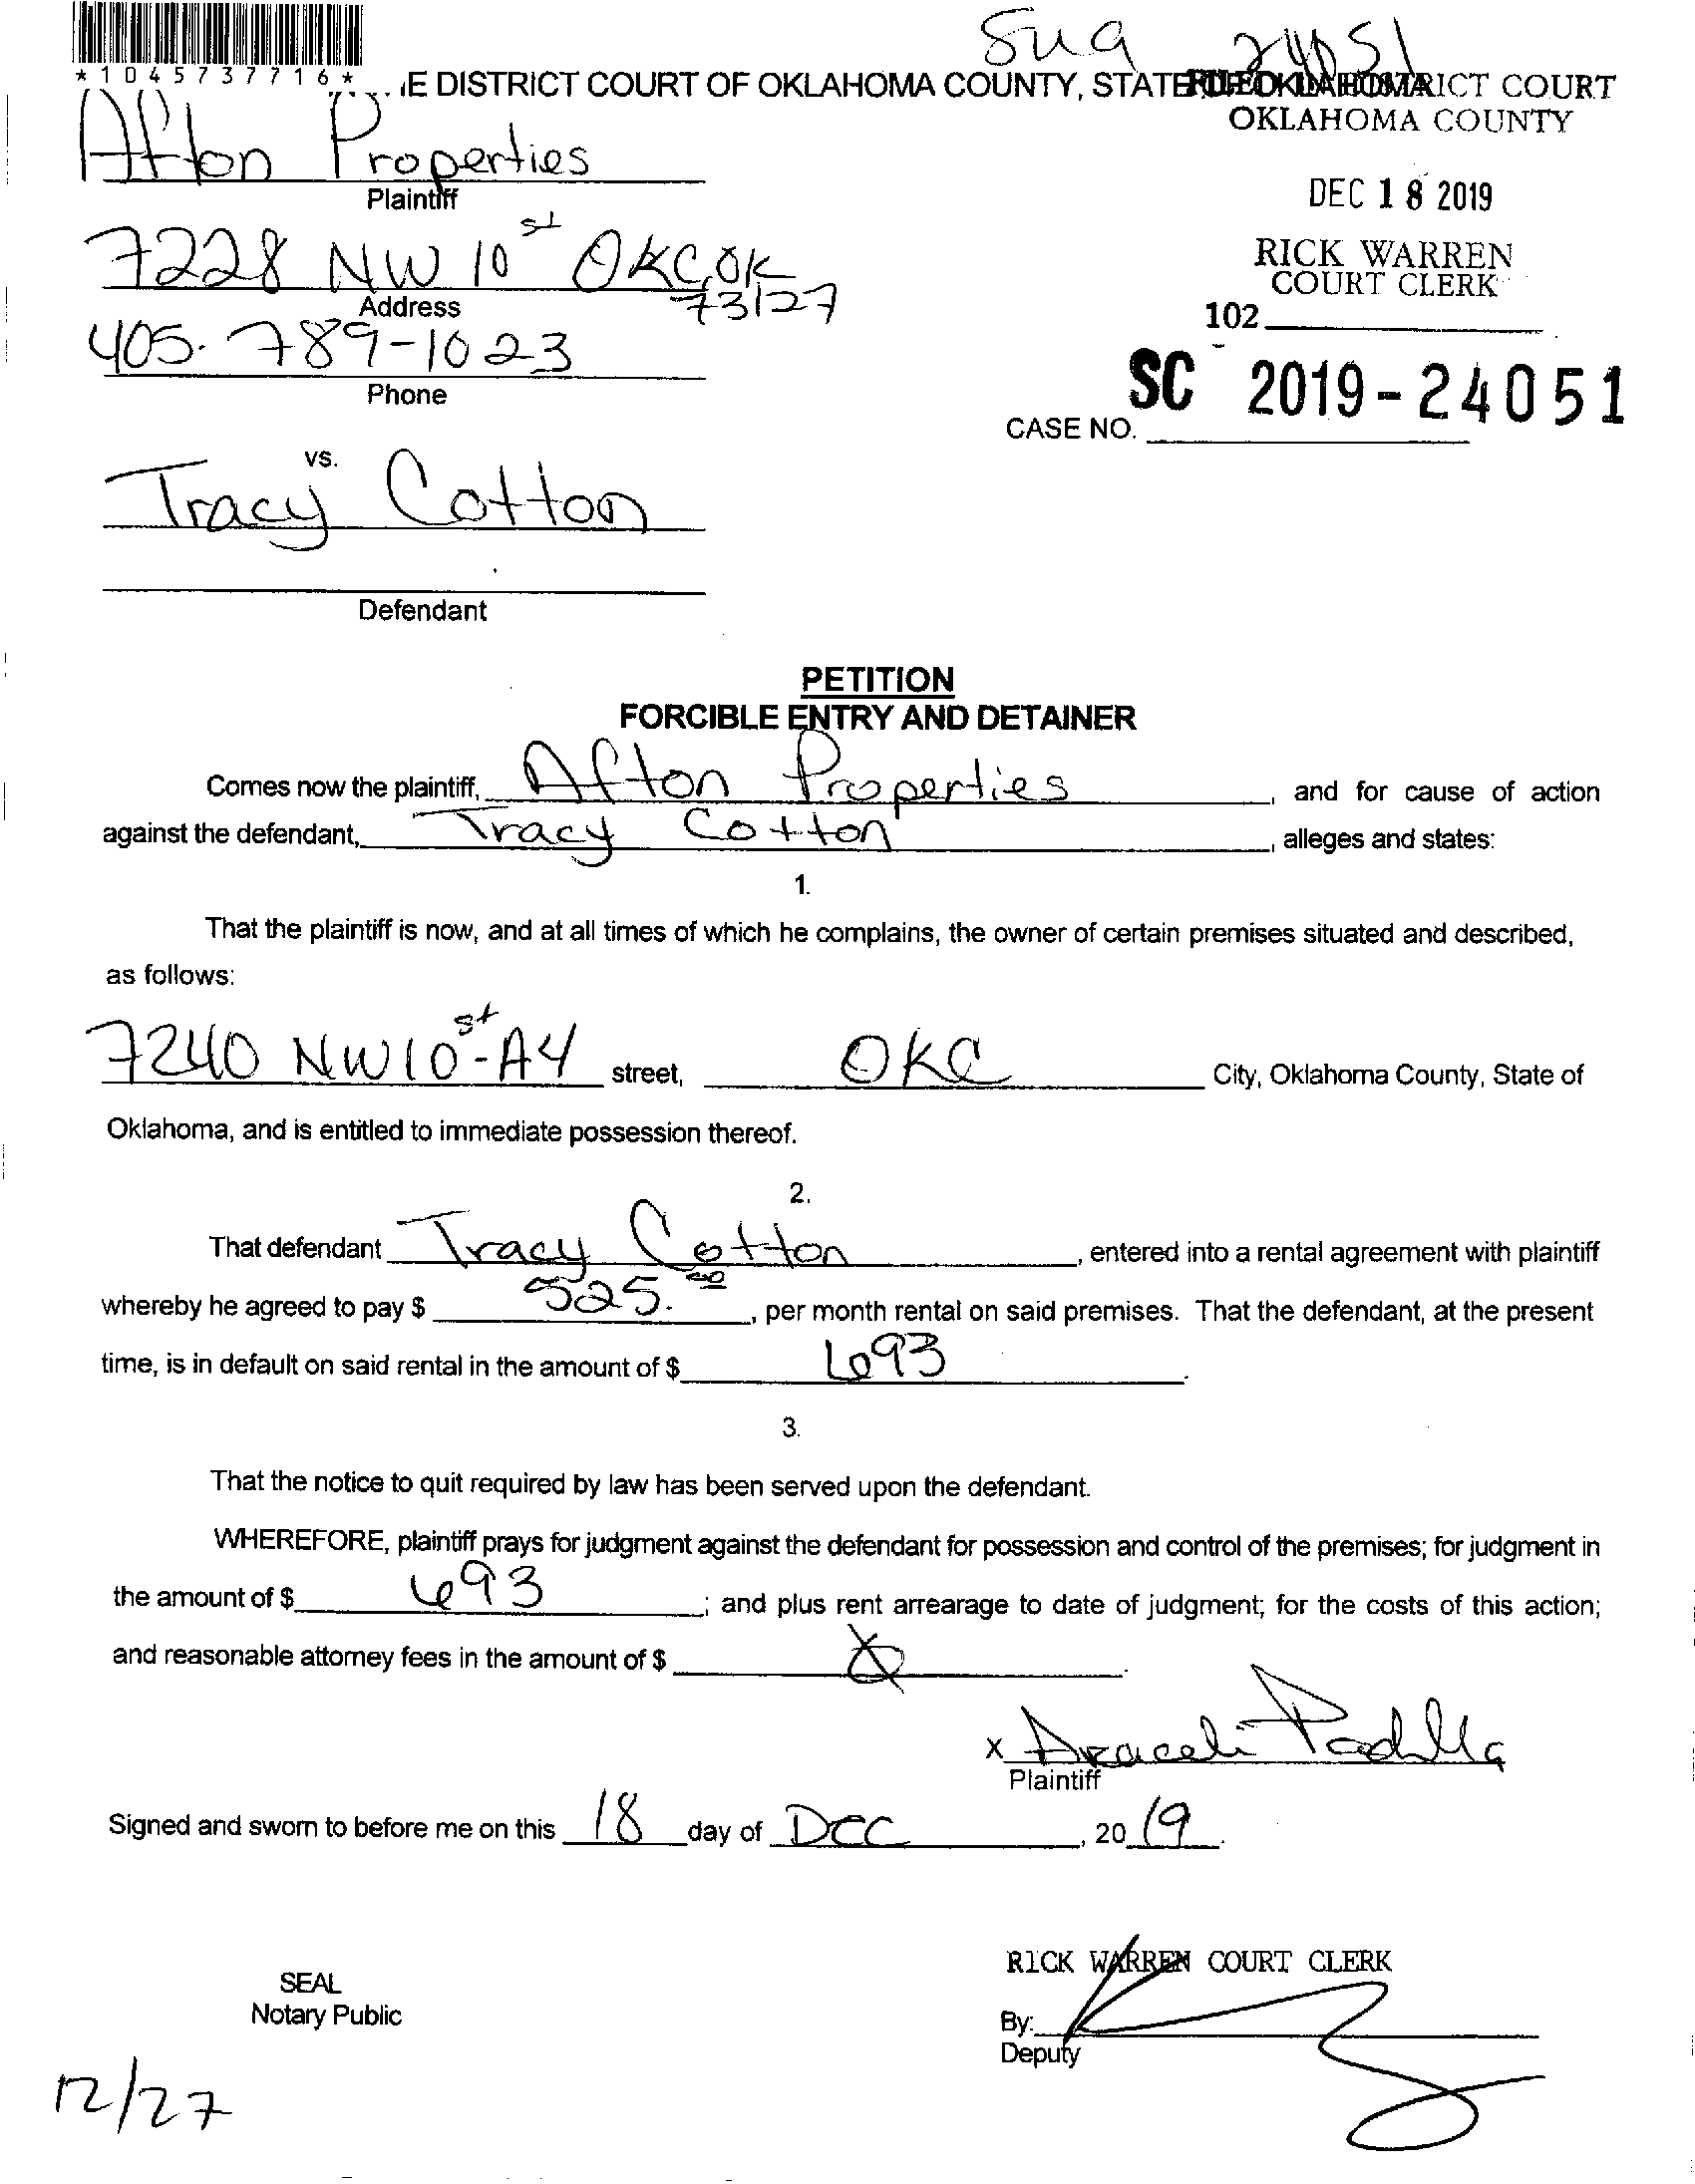 Sug 24051
*1045737716*
IE DISTRICT COURT OF OKLAHOMA COUNTY, STATE OF OKLAHOMA
FILED IN DISTRICT COURT
OKLAHOMA COUNTY
Afton Properties
Plaintiff
DEC 18 2019
7228 NW 10st OKC, OK
73127
Address
RICK WARREN
COURT CLERK
102
405-789-1023
Phone
SC 2019-24051
CASE NO.
vs.
Tracy Cotton
Defendant
PETITION
FORCIBLE ENTRY AND DETAINER
Comes now the plaintiff, Afton Properties, and for cause of action
against the defendant, Tracy Cotton, alleges and states:
1.
That the plaintiff is now, and at all times of which he complains, the owner of certain premises situated and described,
as follows:
7240 NW 10st-A4 street, OKC City, Oklahoma County, State of
Oklahoma, and is entitled to immediate possession thereof.
2.
That defendant Tracy Cotton, entered into a rental agreement with plaintiff
whereby he agreed to pay $ 525.00, per month rental on said premises. That the defendant, at the present
time, is in default on said rental in the amount of $ 693.
3.
That the notice to quit required by law has been served upon the defendant.
WHEREFORE, plaintiff prays for judgment against the defendant for possession and control of the premises; for judgment in
the amount of $ 693; and plus rent arrearage to date of judgment; for the costs of this action;
and reasonable attorney fees in the amount of $
x Araceli Padilla
Plaintiff
Signed and sworn to before me on this 18 day of Dec, 2019.
RICK WARREN COURT CLERK
SEAL
Notary Public
By:
Deputy
12/27